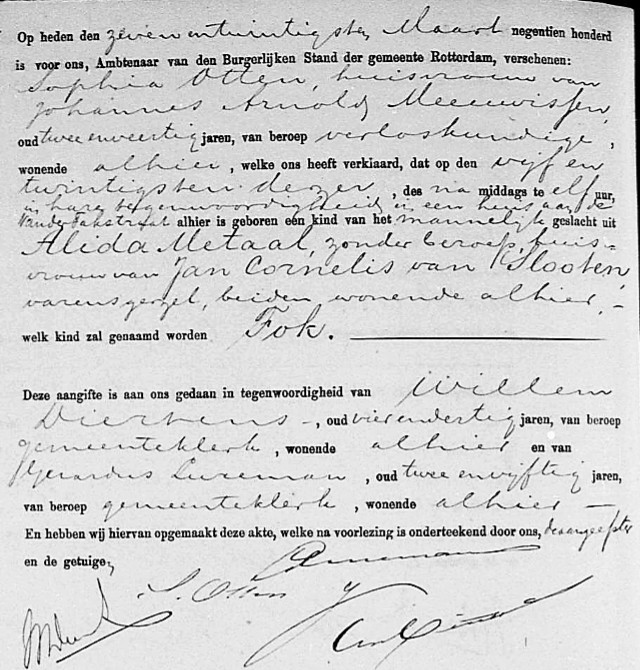 Op heden den zevenentwintigsten Maart negentien honderd
is voor ons, Ambtenaar van den Burgerlijken Stand der gemeente Rotterdam, verschenen:
Sophia Otten, huisvrouw van
Johannes Arnold Meeuwissen,
oud tweeenveertig jaren, van beroep verloskundige,
wonende alhier, welke ons heeft verklaard, dat op den vijfen
twintigsten dezer, des na middags te elf uur,
in hare tegenwoordigheid in een huis aan de
Van der Takstraat alhier is geboren een kind van het mannelijk geslacht uit
Alida Metaal, zonder beroep, huis=
vrouw van Jan Cornelis van Slooten,
varensgezel, beiden wonende alhier, –
welk kind zal genaamd worden Fok.
Deze aangifte is aan ons gedaan in tegenwoordigheid van Willem
–, oud vierendertig jaren, van beroep
gemeenteklerk, wonende alhier en van
Gerardus, oud tweeenvijftig jaren,
van beroep gemeenteklerk, wonende alhier –
En hebben wij hiervan opgemaakt deze akte, welke na voorlezing is onderteekend door ons, de aangeefster
en de getuigen
S. Otten